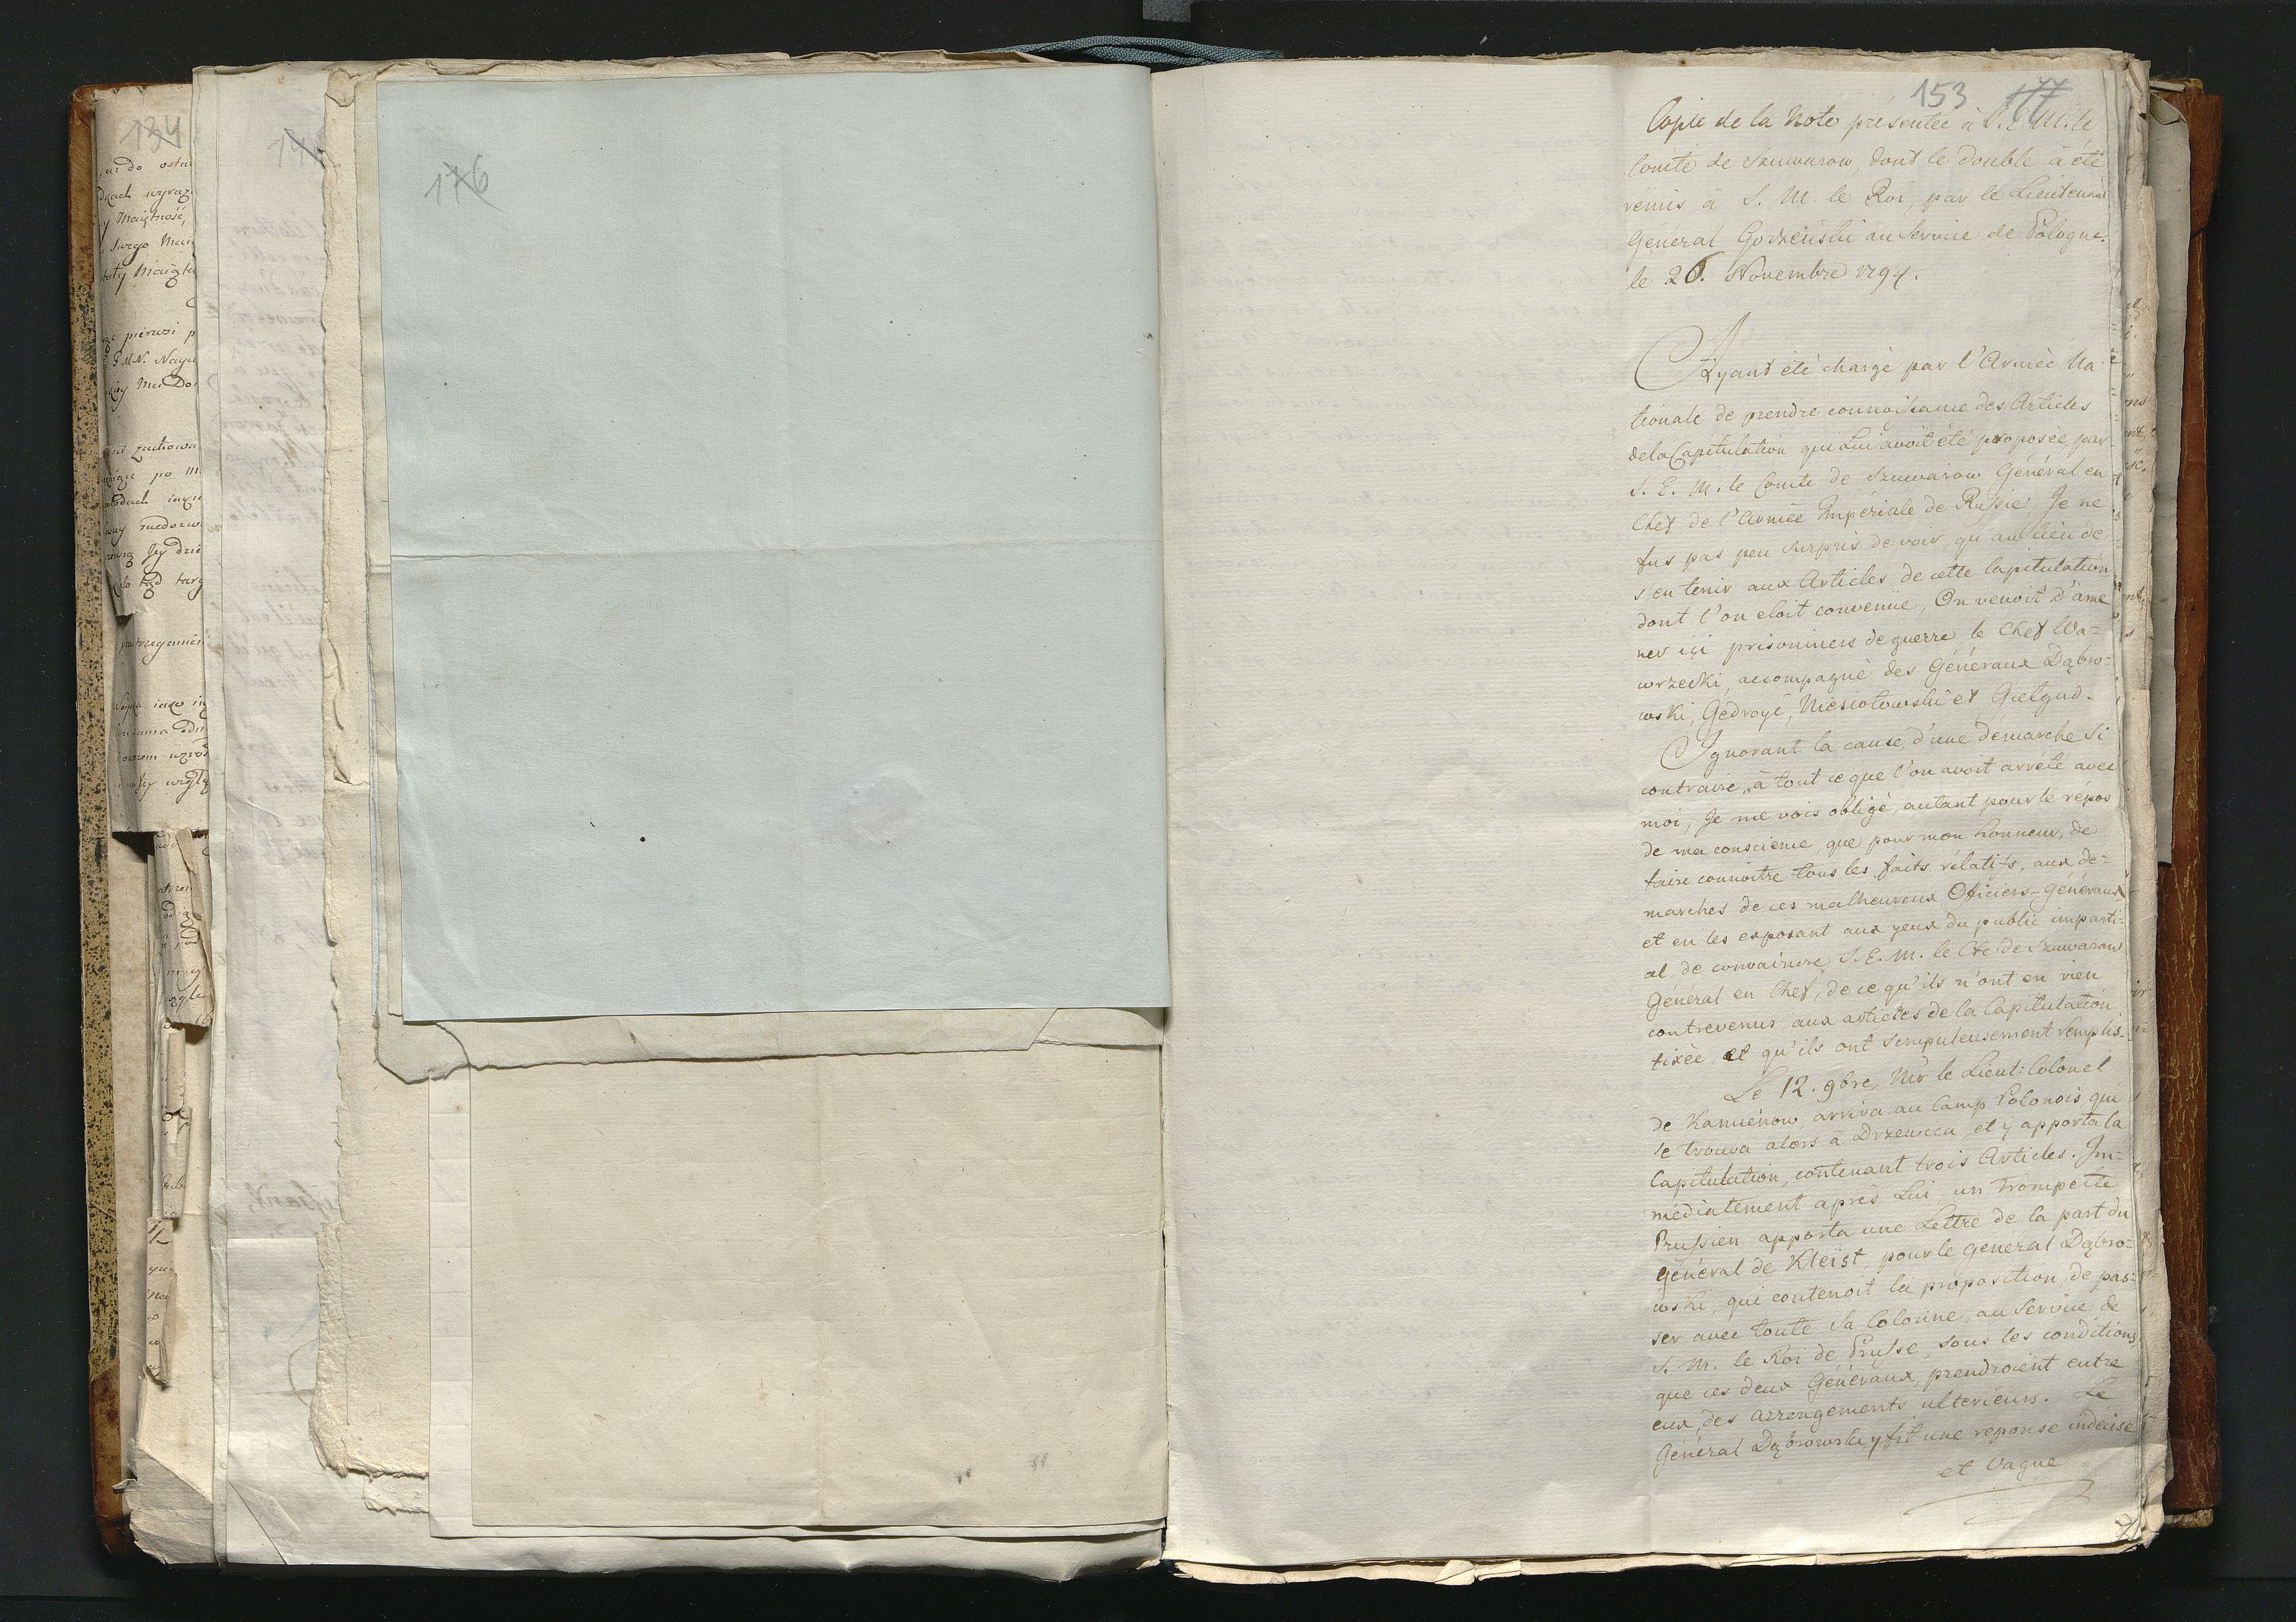 134
176
153 177
Copie de la Note présentée à S. E. M. le
Comte de Szuwarow, dont le double à été
remis à S. M. le Roi, par le Lieutenant
Général Gorzenski au Service de Pologne.
le 26. Novembre 1794.
Ayant été chargé par l'Armée Na-
tionale de prendre connoissance des Articles
de la Capitulation qui Lui avoit été proposée, par
S. E. M. le Comte de Szuwarow Général en
Chef de l'Armée Impériale de Russie, Je ne
fus pas peu surpris de voir, qu'au lieu de
s'en tenir aux Articles de cette Capitulation
dont l'on étoit convenüe, On venoit d'ame
ner içi prisonniers de guerre le Chef Wa-
wrzecki, accompagné des Généraux Dąbro-
wski, Gedroyć, Niesiołowski et Gielgud.
Ignorant la cause, d'une démarche si
contraire, à tout ce que l'on avoit arrêté avec
moi, Je me vois obligé, autant pour le répos
de ma conscience, que pour mon honneur, de
faire connoitre tous les faits rélatifs, aux dé-
marches de ces malheureux Officiers-Généraux
et en les exposant aux yeux du public imparti-
al, de convaincre S. E. M. le Cte de Szuwarow
Général en Chef, de ce qu'ils n'ont en rien
contrevenus aux articles de la Capitulation
fixée et qu'ils ont scrupuleusement remplis.
Le 12. 9bre, Mr le Lieut: Colonel
de Kamienow arriva au Camp Polonois qui
se trouva alors à Drzewica et y apporta la
Capitulation, contenant trois Articles. Im-
médiatement après Lui, un Trompette
Prussien apporta une Lettre de la part du
Général de Kleist, pour le Général Dąbro-
wski, qui contenoit la proposition, de pas-
ser avec toute sa Colonne, au Service de
S. M. le Roi de Prusse, sous les conditions,
que ces deux Généraux, prendroient entre
eux, des arrengements ulterieurs. Le
Général Dąbrowski, y fit une reponse indécise
et Vague